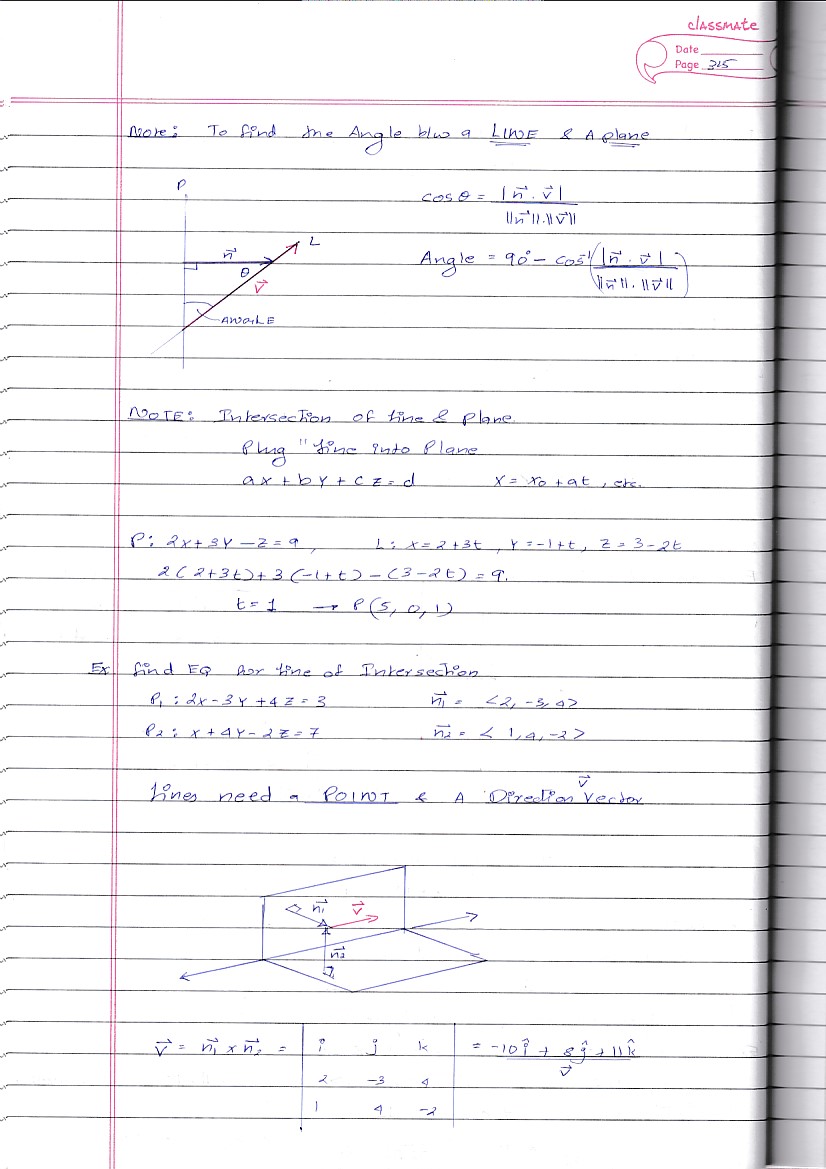 classmate
Date
Page 315
Note: To find the Angle b/w a LINE & A plane
P
cosθ = |n⃗ . v⃗| / ||n⃗||.||v⃗||
n⃗
L
θ
v⃗
Angle = 90° - cos⁻¹(|n⃗ . v⃗| / ||n⃗||.||v⃗||)
ANGLE
NOTE: Intersection of line & Plane.
Plug "line into Plane
ax + by + cz = d    x = x₀ + at , etc.
P: 2x + 3y - z = 9,    L: x = 2+3t , y = -1+t, z = 3-2t
2(2+3t) + 3(-1+t) - (3-2t) = 9.
t = 1 → P(5, 0, 1)
Ex find EQ for line of Intersection
P₁ : 2x - 3y + 4z = 3    n⃗₁ = <2, -3, 4>
P₂ : x + 4y - 2z = 7    n⃗₂ = < 1, 4, -2>
v⃗
Lines need a POINT & A Direction Vector
n⃗₁ v⃗
n⃗₂
v⃗ = n⃗₁ x n⃗₂ = | i j k | = -10î + 8ĵ + 11k̂
v⃗
2 -3 4
1 4 -2